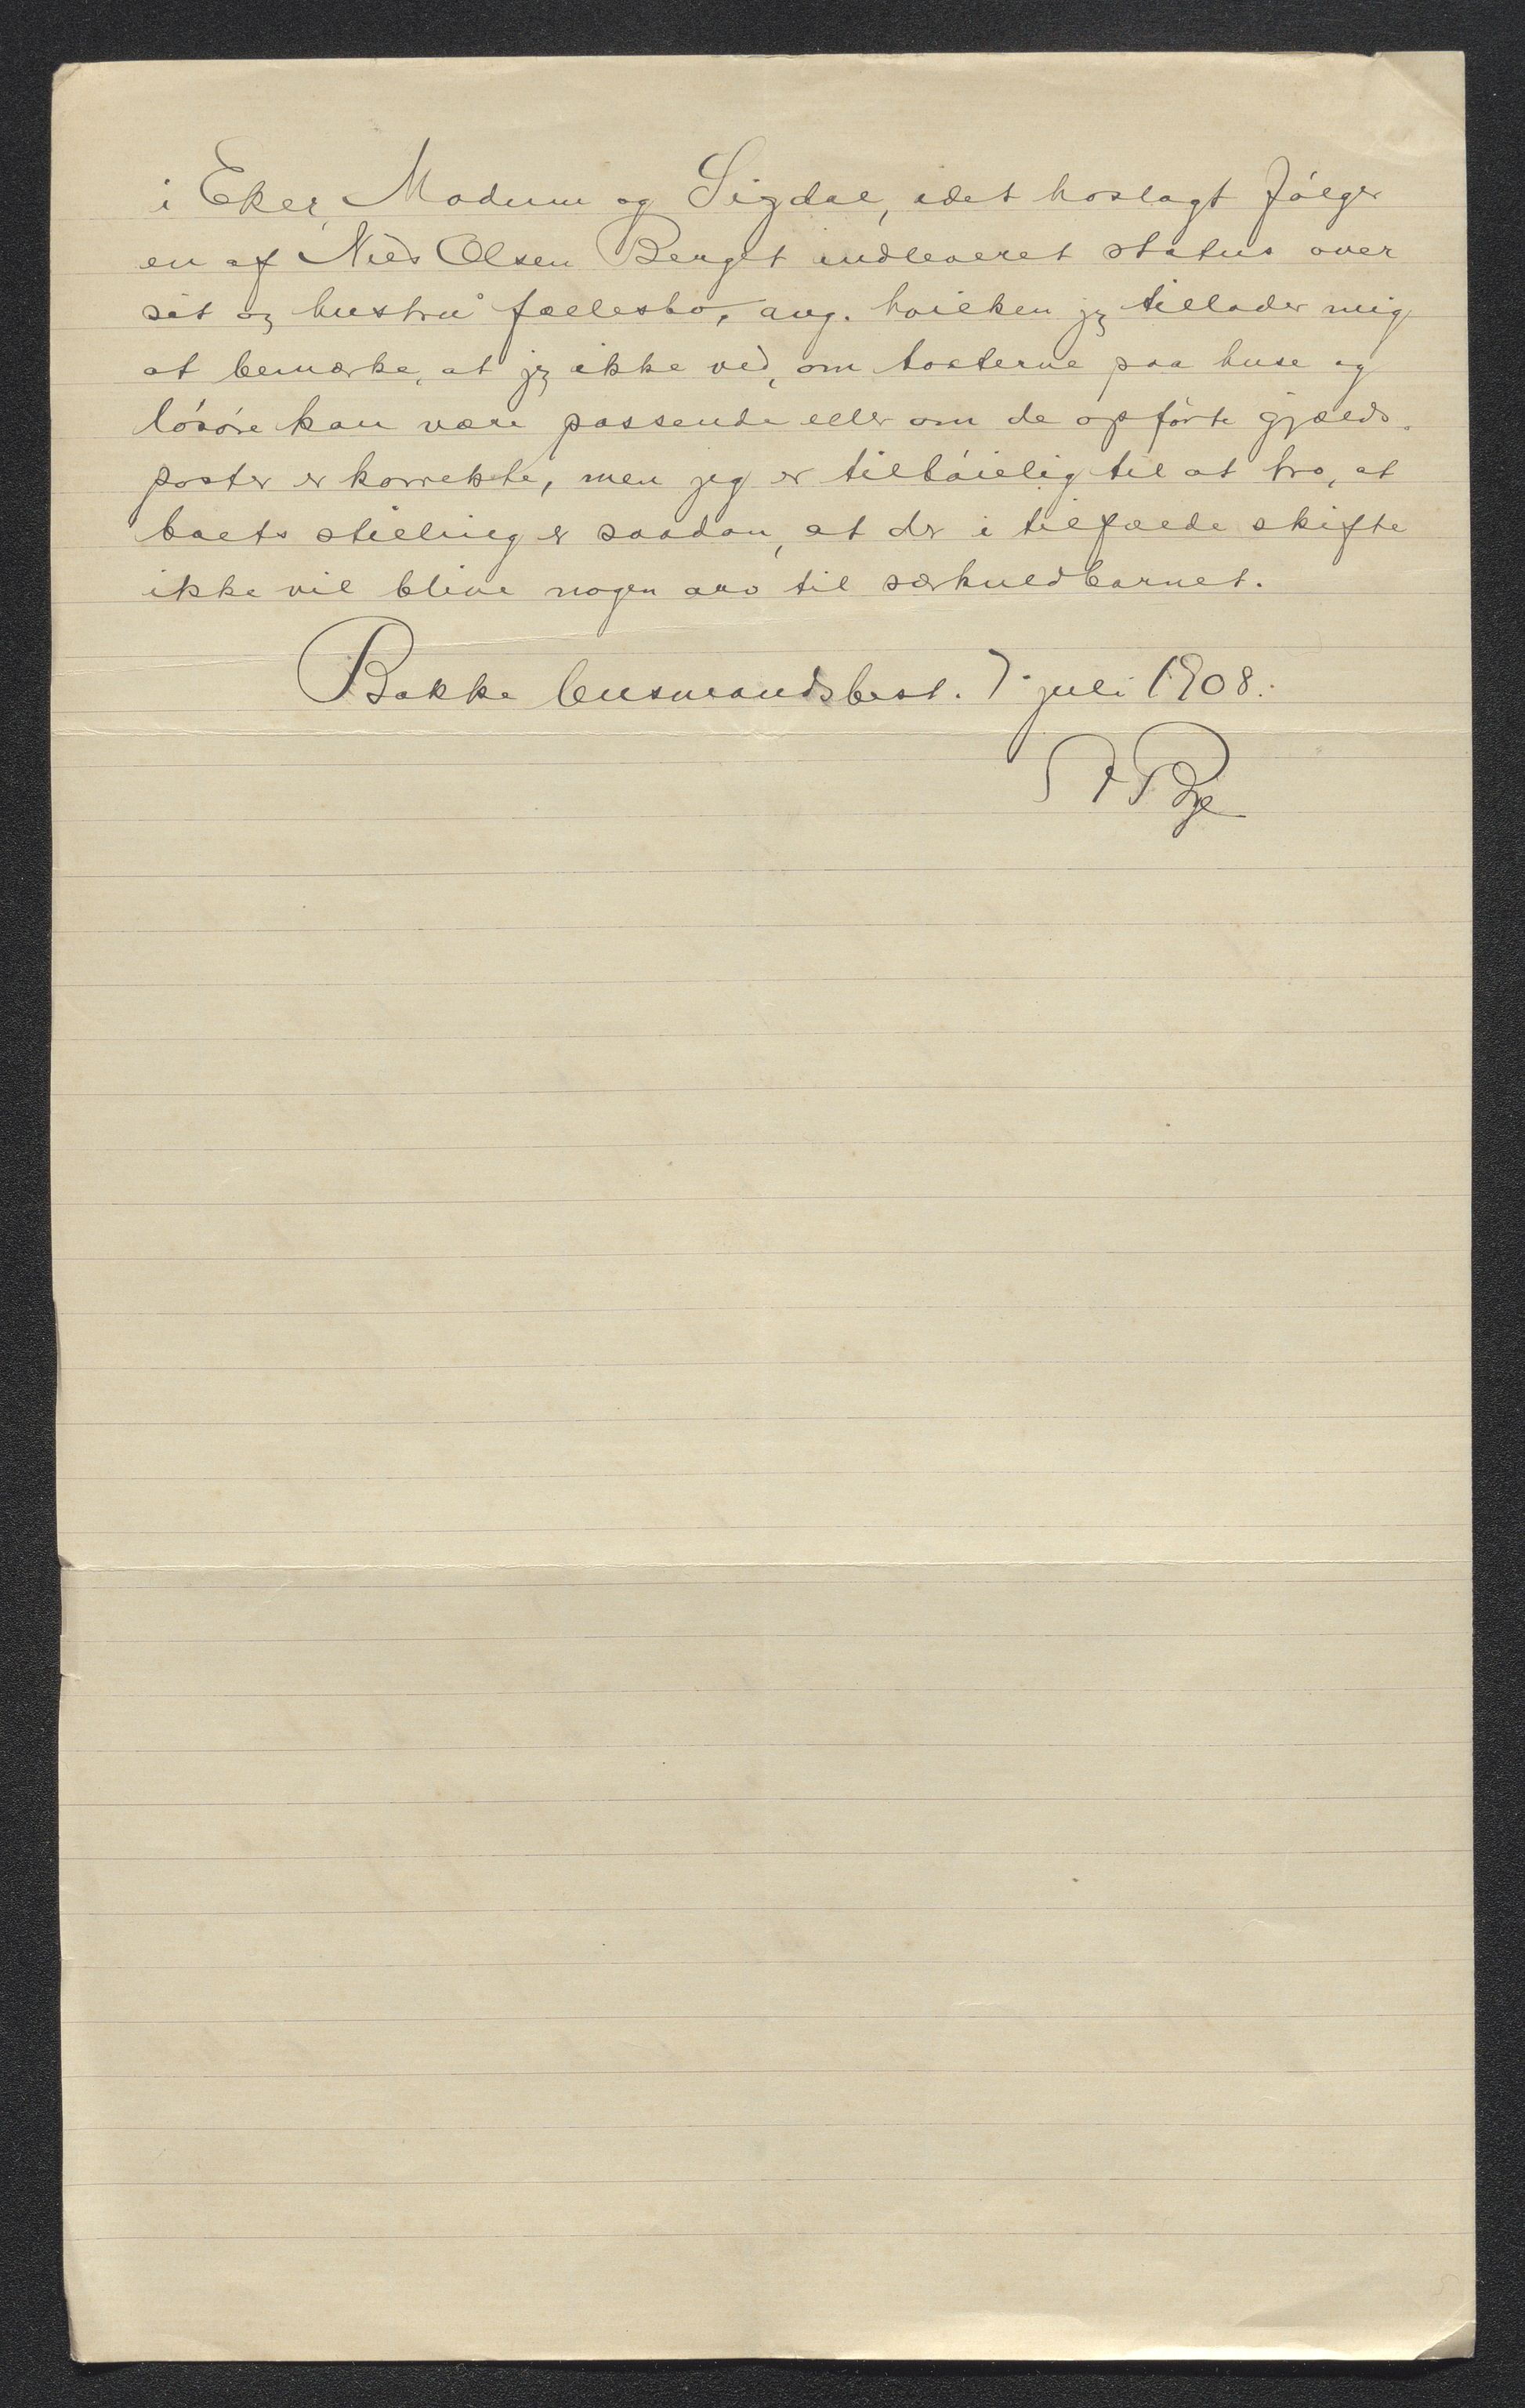 i Eker, Modum og Sigdal, idet hoslagt følger
en af Nils Olsen Berget indleveret status over
sit og hustru's fællesbo, ang. hvilken jeg tillader mig
at bemærke, at jeg ikke ved, om taksterne paa huse og
løsøre kan være passende eller om de opførte gjælds-
poster er korrekte, men jeg er tilbøielig til at tro, at
boets stilling er saadan, at der i tilfælde skifte
ikke vil blive nogen arv til særkuldbarnet.
Bakke lensmandsbest. 7. juli 1908.